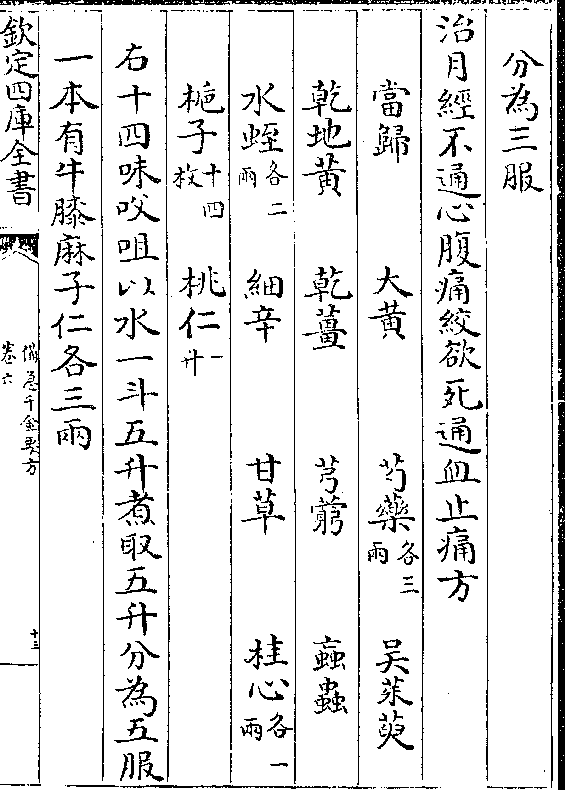 分為三服
治月經不通心腹痛絞欲死通血止痛方
當歸 大黃 芍藥各三兩 吴茱萸
乾地黃 乾薑 芎藭 䖟蟲
水蛭各二兩 細辛 甘草 桂心各一兩
梔子十四枚 桃仁一升
右十四味㕮咀以水一斗五升煮取五升分為五服
一本有牛膝麻子仁各三兩
欽定四庫全書
備急千金要方
卷六
十三